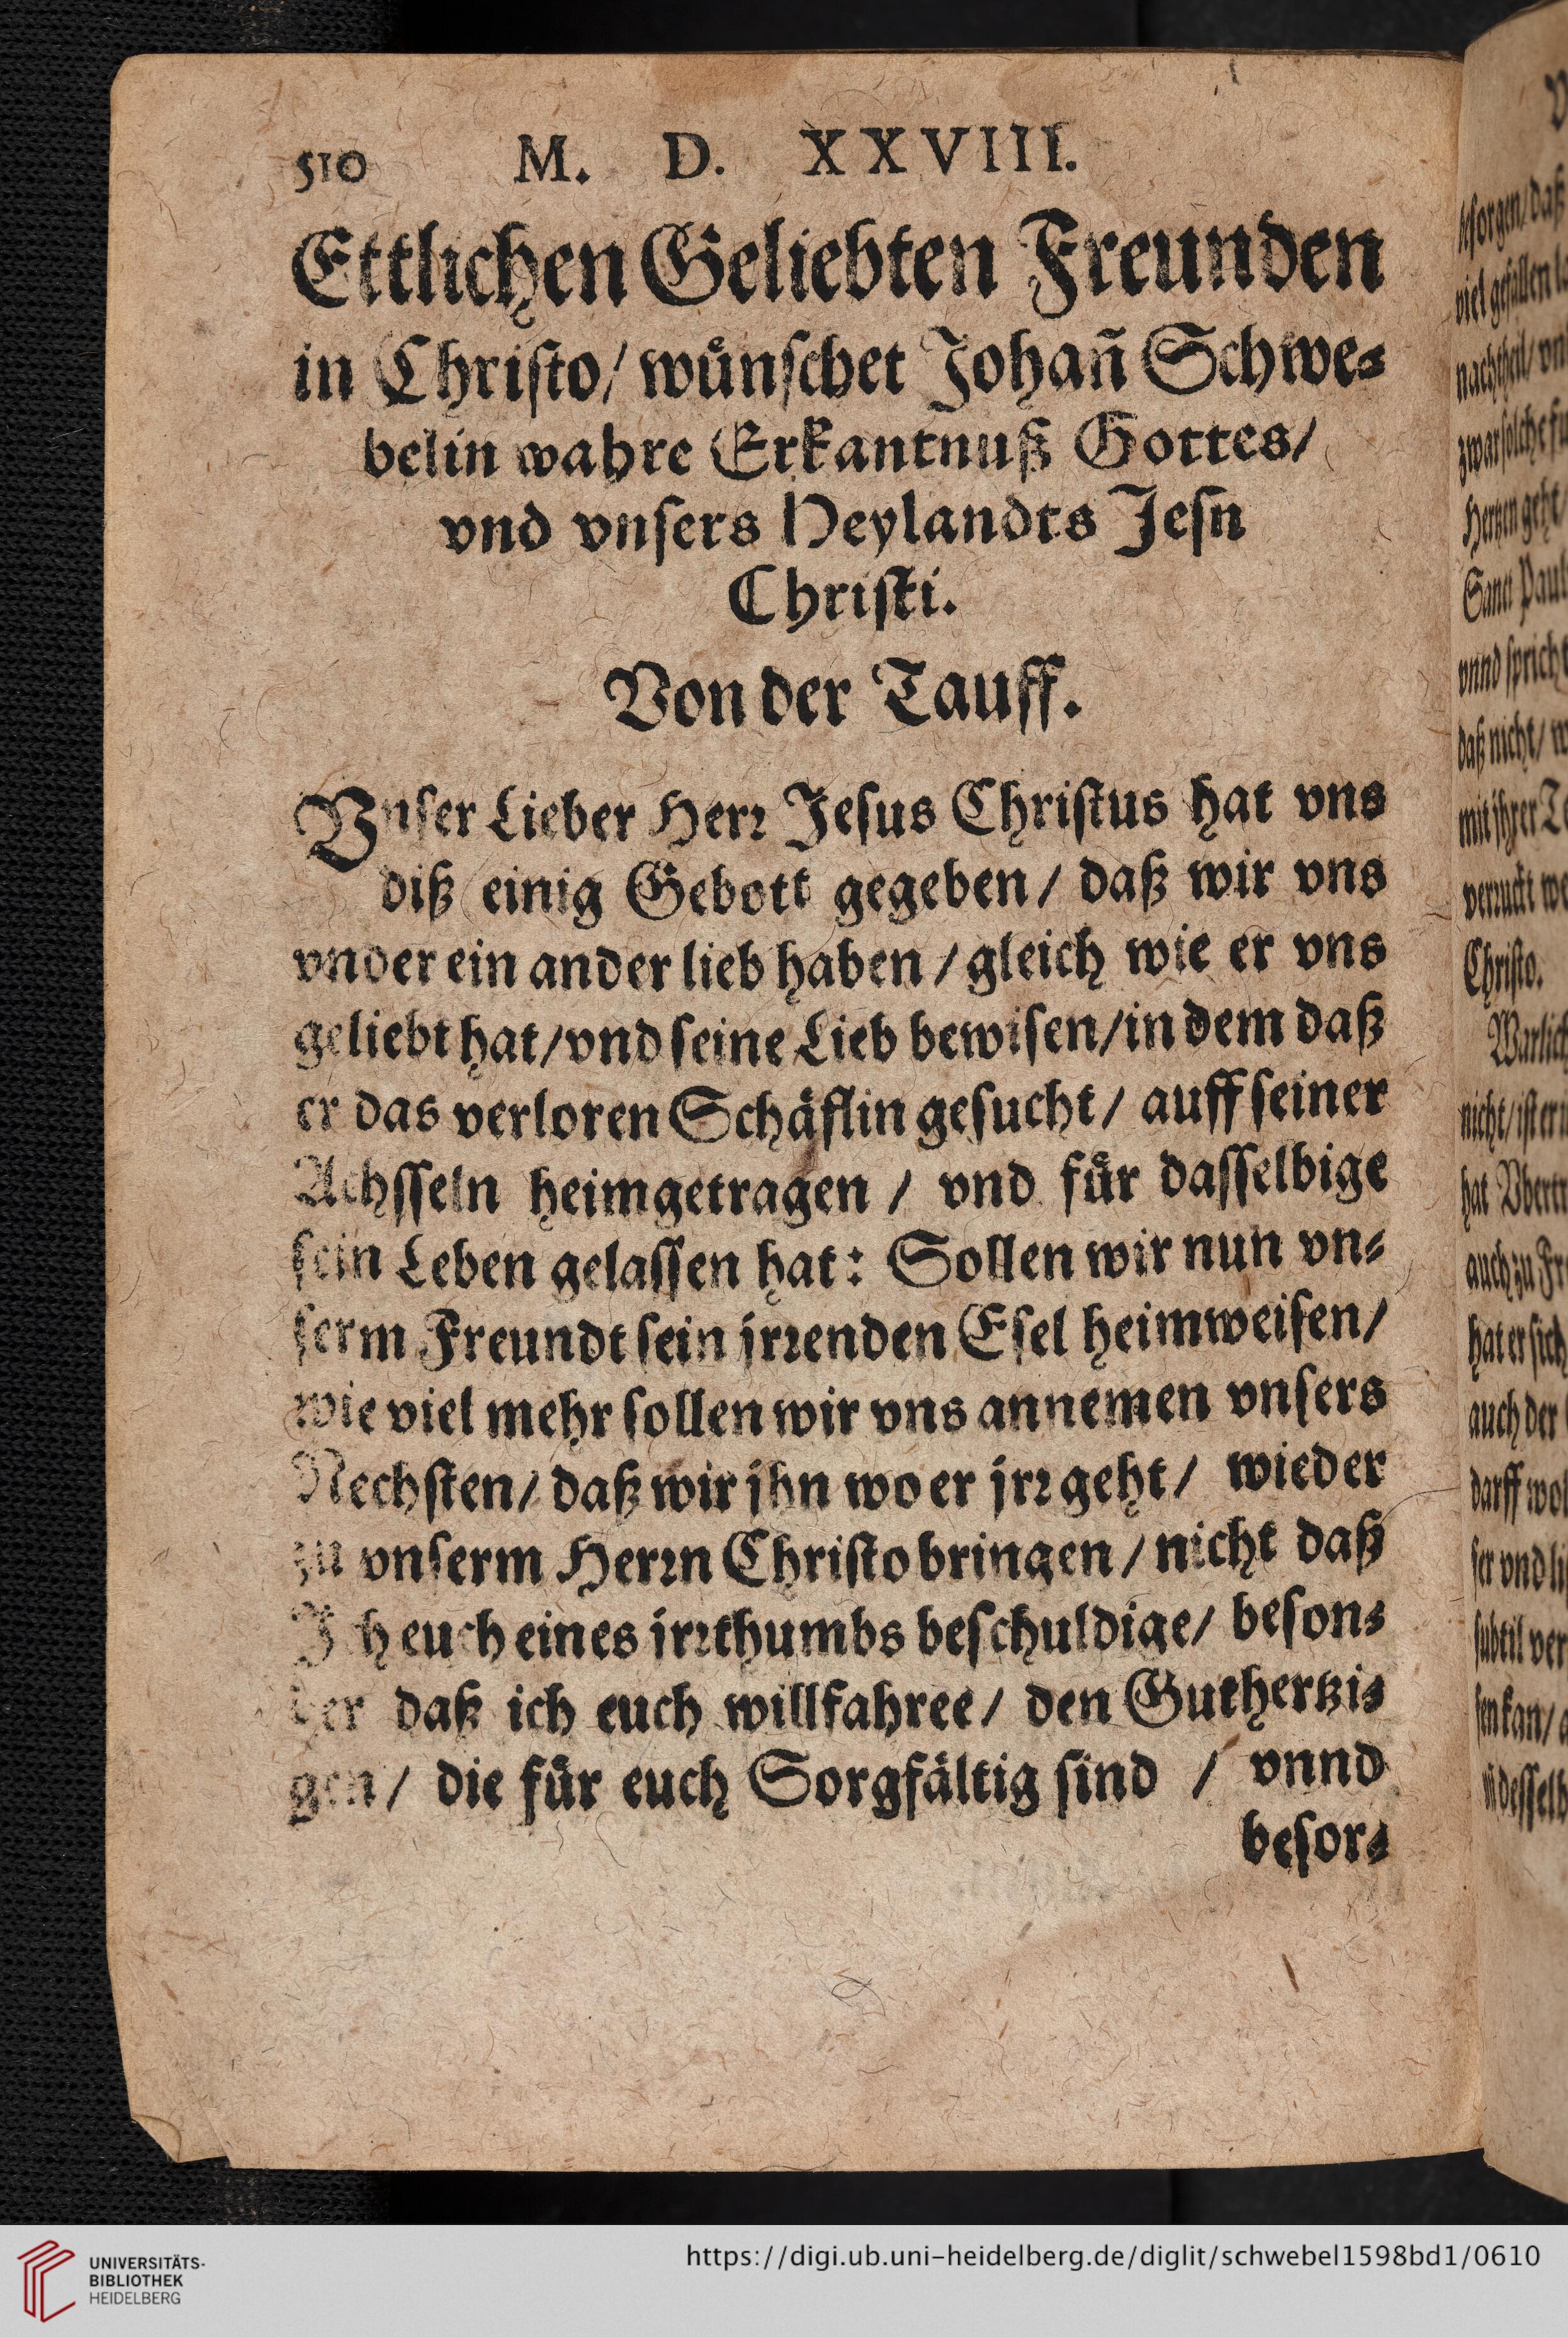 510 M. D. XXVIII.
Ettlichen Geliebten Freunden
in Christo/ wuͤnschet Johañ Schwe⸗
belin wahre Erkantnuß Gottes/
vnd vnsers Heylandts Jesn
Christi.
Von der Tauff.
Vnser Lieber Herr Jesus Christus hat vns
diß einig Gebott gegeben/ daß wir vns
vnder ein ander lieb haben/ gleich wie er vns
geliebt hat/ vnd seine Lieb bewisen/ in dem daß
er das verloren Schäflin gesucht/ auff seiner
Achsseln heimgetragen/ vnd fuͤr dasselbige
sein Leben gelassen hat: Sollen wir nun vn⸗
serm Freundt sein jrrenden Esel heimweisen/
wie viel mehr sollen wir vns annemen vnsers
Nechsten/ daß wir jhn wo er jrr geht/ wieder
zu vnserm Herrn Christo bringen/ nicht daß
Ich euch eines jrrthumbs beschuldige/ beson⸗
der daß ich euch willfahree/ den Guthertzi⸗
gen/ die fuͤr euch Sorgfältig sind / vnnd
besor⸗
besorgen/ daß
viel gefallen
nachtheil/
zwar solche
Hertzen geht
Sanct
vnnd spricht
daß nicht/
mit jhrer
verruckt
Christo.
Warlich
nicht/ ist
hat
auch zu
hat er sich
auch der
darff
ser vnd
subtil
sen kan/
UNIVERSITÄTS-
BIBLIOTHEK
HEIDELBERG
https://digi.ub.uni-heidelberg.de/diglit/schwebel1598bd1/0610